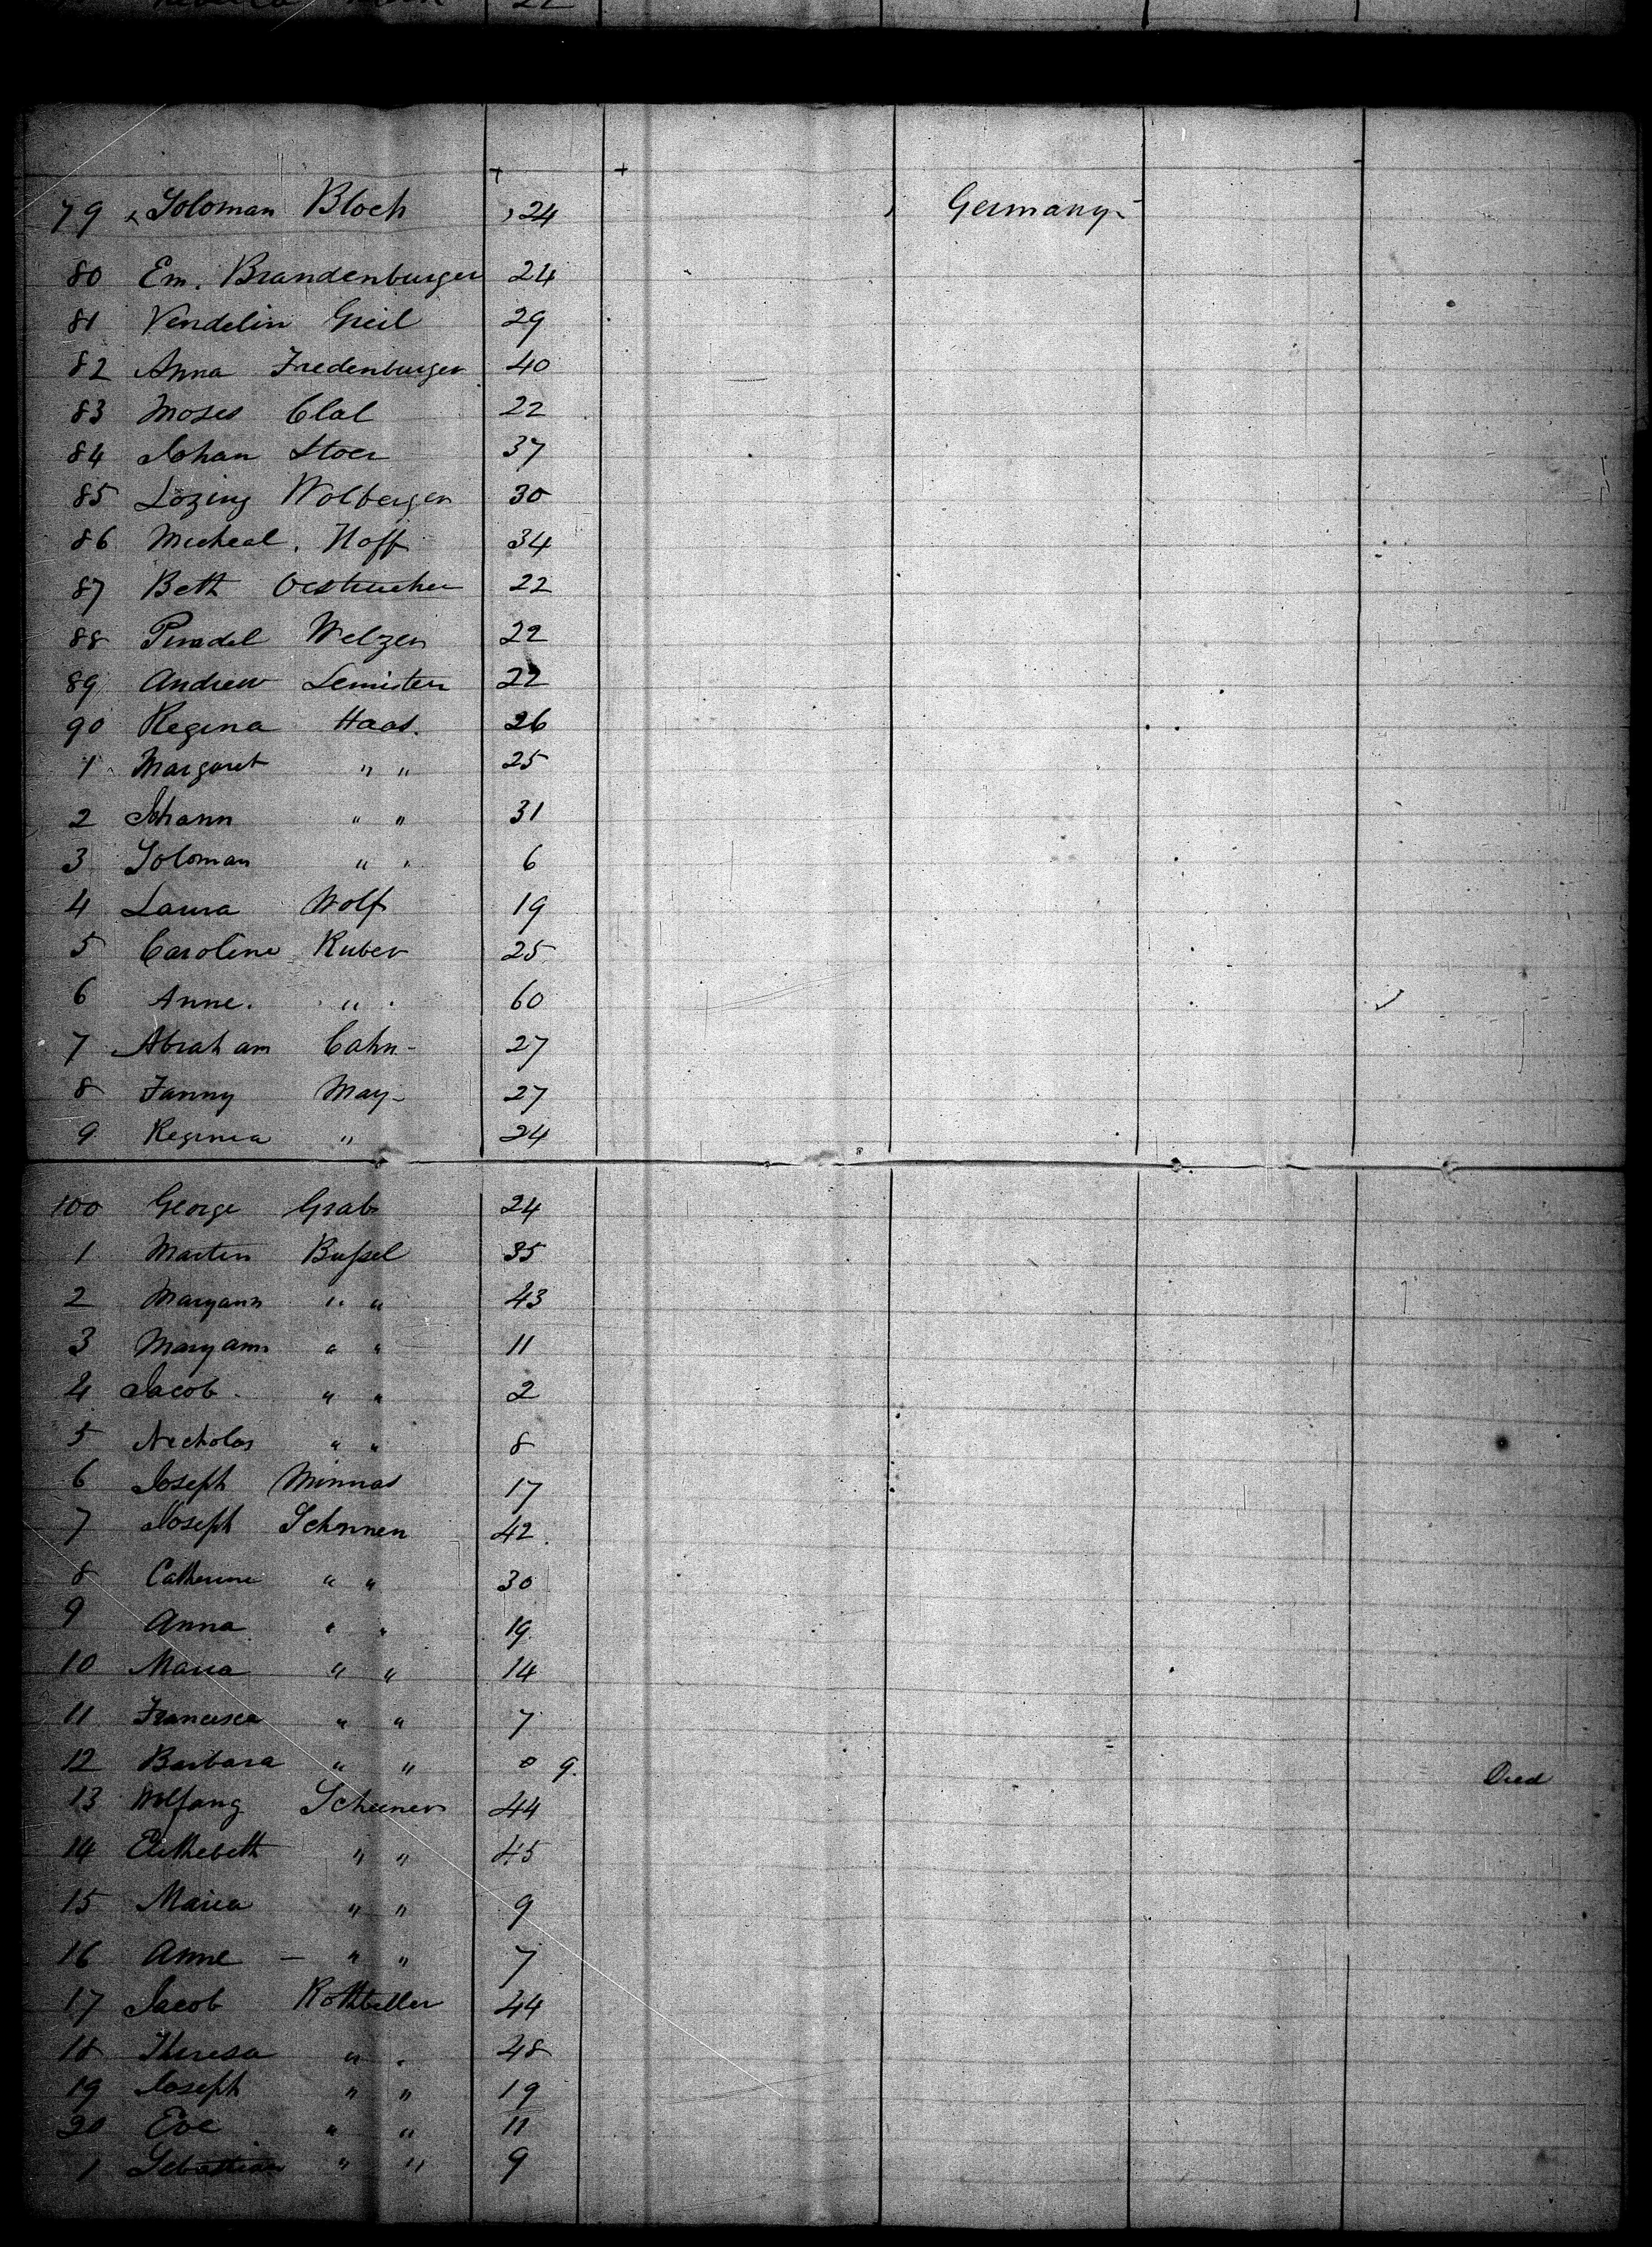 22
79 Soloman Bloch 24 Germany
80 Em. Brandenburger 24
81 Vendelin Greil 29
82 Anna Fredenburger 40
83 Moses Clal 22
84 Johan Stoer 37
85 Lozing Wolberger 30
86 Micheal Hoff 34
87 Beth Oestreicher 22
88 Welzer 22
89 Andrew Lemister 22
90 Regina Haas. 26
1 Margaret " " 25
2 Johann " " 31
3 Soloman " " 6
4 Laura Wolf 19
5 Caroline Kuber 25
6 Anne. " 60
7 Abraham Cahn - 27
8 Fanny May - 27
9 Reginia " 24
100 George Grab 24
1 Martin Bussel 35
2 Maryann " " 43
3 Maryann " " 11
4 Jacob " " 2
5 Nicholas " " 8
6 Joseph Minnas 17
7 Joseph Schonnen 42
8 Catherine " " 30
9 Anna " " 19
10 Maria " " 14
11 Francisca " " 7
12 Barbara " " 0 9. Died
13 Wolfang Scheener 44
14 Elithebeth " " 45
15 Maria " " 9
16 Anne - " " 7
17 Jacob Rothbeller 44
18 Theresa " " 48
19 Joseph " " 19
20 Eve " " 11
1 Sebastian " " 9